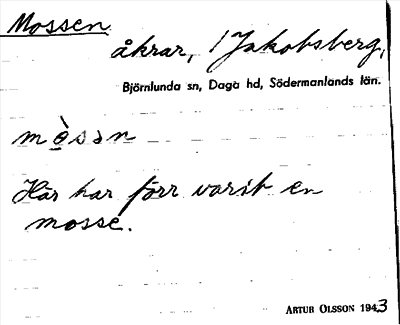 Mossen
åkrar, / Jakobsberg,
Björnlunda sn, Daga hd, Södermanlands län.
mò̲sən
Här har förr varit en
mosse.
ARTUR OLSSON 1943